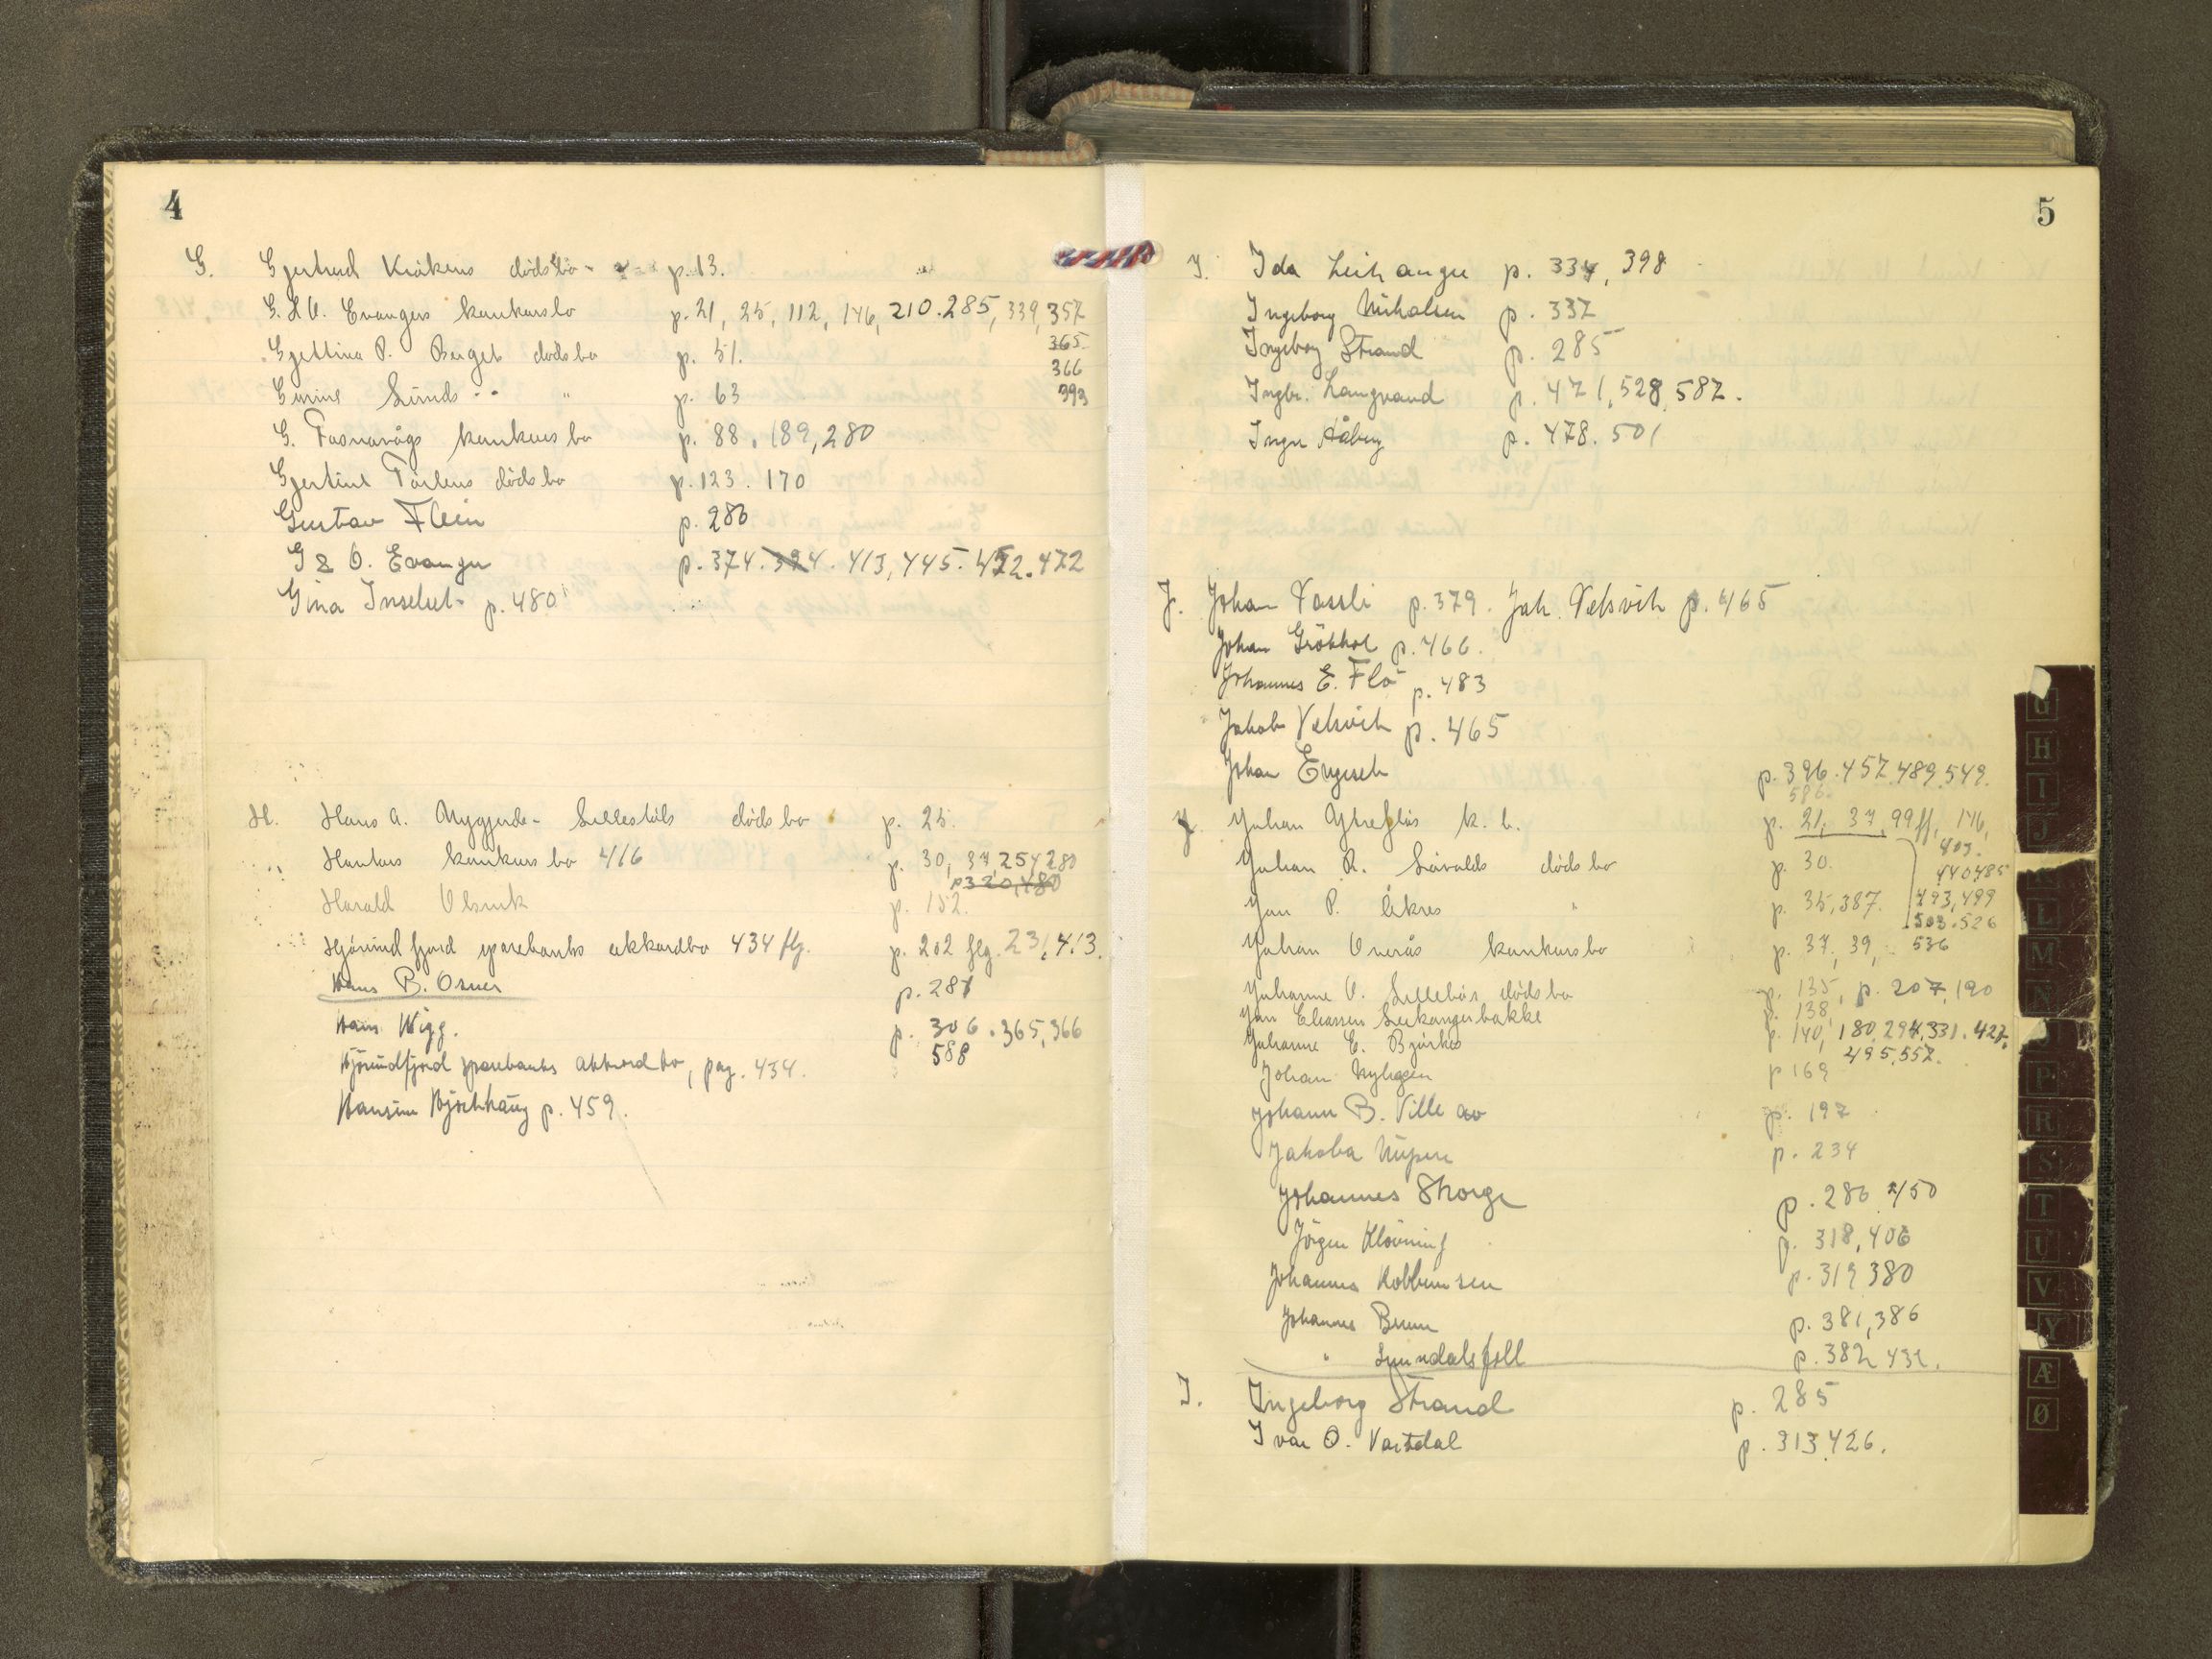 4
G. Gjertrud Kråkens dødsbo - p. 13.
G. & O. Evangers konkursbo p. 21, 25, 112, 146, 210. 285, 339, 357
365.
Gjettina P. Berget dødsbo p. 51.
366
Gurine Sunds " p. 63
393
G. Fosnavågs konkursbo p. 88, 189, 280
Gjertine dødsbo p. 123. 170
Gustav Flem p. 286
G & O. Evanger p. 374. 394. 413, 445. 452. 472
Gina Inselset p. 480
H. Hans A. Nygjerde - dødsbo p. 25.
konkursbo 416 p. 30, 37, 254, 280
p 320, 480
Harald p. 152.
Hjørundfjord sparebanks akkordbo 434 flg. p. 202 flg. 231, 413.
Hans B. Osnes p. 287
Hans Wigg. p. 306. 365, 366
588
Hjørundfjord sparebanks akkordbo, pag. 434.
Hansine Bjørkhaug p. 459.
5
I. Ida Leikanger p. 334, 398
Ingeborg Mikalsen p. 337
Ingeborg Strand p. 285
Ingbr. Langvand p. 471, 528, 587.
Inga Aaberg p. 478. 501
J. Johan Vassli p. 379. Jak. Velsvik p. 465
Johan Grøkhol p. 466.
Johannes E. Flø p. 483
Jakob Velsvik p. 465
Johan Engeset p. 396. 457. 489. 549.
586.
J. Johan Ytreflås k.b. p. 21, 37, 99 ff, 146,
403.
Johan R. dødsbo p. 30.
440 485
Jon P. Åkres " p. 35, 387.
493, 499
503. 526
Johan Overås konkursbo p. 37, 39,
536
Johanne O. dødsbo p. 135, p. 207, 190
Jon Eliassen Leikangerbakke p. 138,
Johanne E. Bjørkås p. 140, 180, 294, 331. 427.
495, 557.
Johan p 169
Johann B. Ville av p. 197
Jakoba p. 234
Johannes Skorge p. 286 450
Jørgen Kløvning p. 318, 406
Johannes p. 319 380
Johannes Bruun p. 381, 386
" p. 382 432.
I. Ingeborg Strand p. 285
Ivar O. Vartdal p. 313. 426.
H
I
J
L
M
N
P
R
S
T
U
V
Y
Æ
Ø